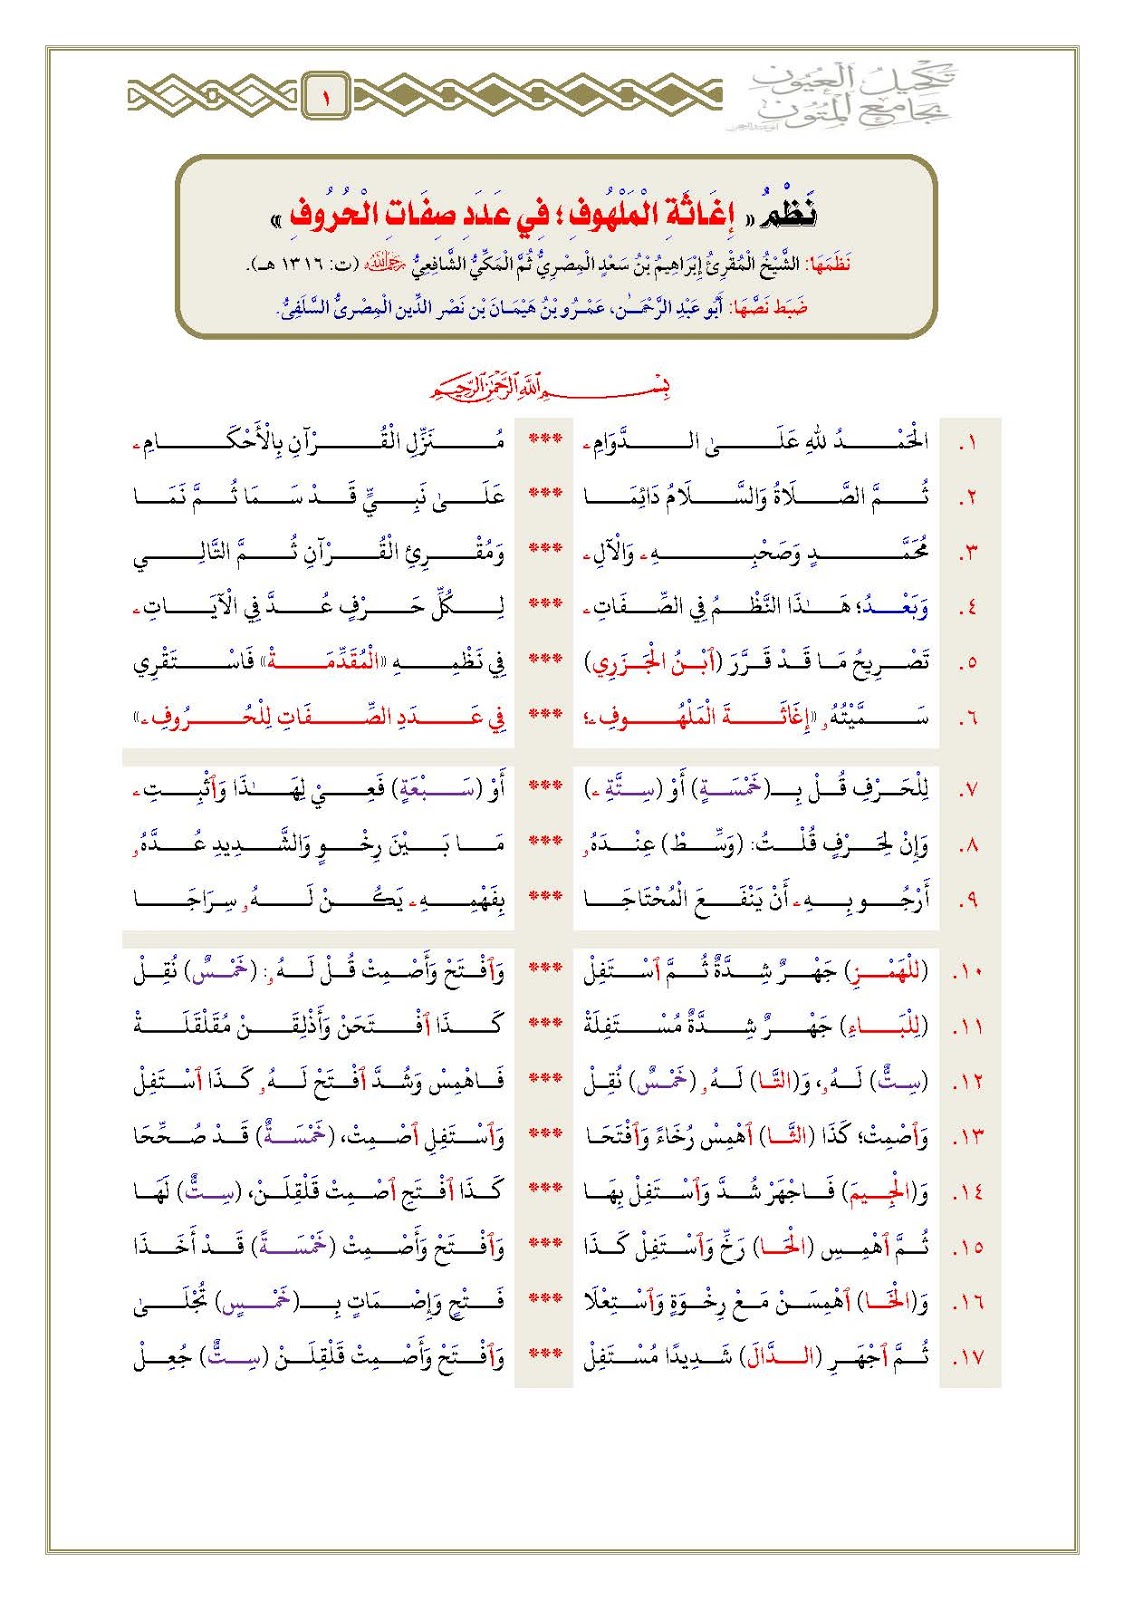 تَكْحِيلُ الْعُيُونِ
بِجَامِعِ الْمُتُونِ
١
نَظْمُ « إِغَاثَةِ الْمَلْهُوفِ ؛ فِي عَدَدِ صِفَاتِ الْحُرُوفِ »
نَظَمَهَا: الشَّيْخُ الْمُقْرِئُ إِبْرَاهِيمُ بْنُ سَعْدٍ الْمِصْرِيُّ ثُمَّ الْمَكِّيُّ الشَّافِعِيُّ رحمه الله (ت: ١٣١٦ هـ).
ضَبَط نَصَّهَا: أَبُو عَبْدِ الرَّحْمَـٰنِ، عَمْرُو بْنُ هَيْمَانَ بْنِ نَصْرِ الدِّينِ الْمِصْرِىُّ السَّلَفِىُّ.
بِسْمِ اللَّهِ الرَّحْمَٰنِ الرَّحِيمِ
١. الْحَمْدُ لِلهِ عَلَى الدَّوَامِۦ *** مُنَزِّلِ الْقُرْآنِ بِالْأَحْكَامِۦ
٢. ثُمَّ الصَّلَاةُ وَالسَّلَامُ دَائِمَا *** عَلَى نَبِيٍّ قَدْ سَمَا ثُمَّ نَمَا
٣. مُحَمَّدٍ وَصَحْبِهِۦ وَالْآلِۦ *** وَمُقْرِئِ الْقُرْآنِ ثُمَّ التَّالِي
٤. وَبَعْدُ؛ هَـٰذَا النَّظْمُ فِي الصِّفَاتِۦ *** لِكُلِّ حَرْفٍ عُدَّ فِي الْآيَاتِۦ
٥. تَصْرِيحُ مَا قَدْ قَرَّرَ (ٱبْنُ الْجَزَرِي) *** فِي نَظْمِهِ «الْمُقَدِّمَةْ» فَاسْتَقْرِي
٦. سَمَّيْتُهُۥ «إِغَاثَةَ الْمَلْهُوفِۦ؛ *** فِي عَدَدِ الصِّفَاتِ لِلْحُرُوفِۦ»
٧. لِلْحَرْفِ قُلْ بِـ(خَمْسَةٍ) أَوْ (سِتَّةِۦ) *** أَوْ (سَبْعَةٍ) فَعِيْ لِهَـٰذَا وَٱثْبِتِۦ
٨. وَإِنْ لِحَرْفٍ قُلْتُ: (وَسِّطْ) عِنْدَهُۥ *** مَا بَيْنَ رِخْوٍ وَالشَّدِيدِ عُدَّهُۥ
٩. أَرْجُو بِهِۦ أَنْ يَنْفَعَ الْمُحْتَاجَا *** بِفَهْمِهِۦ يَكُنْ لَهُۥ سِرَاجَا
١٠. (لِلْهَمْزِ) جَهْرٌ شِدَّةٌ ثُمَّ ٱسْتَفِلْ *** وَٱفْتَحْ وَأَصْمِتْ قُلْ لَهُۥ: (خَمْسٌ) نُقِلْ
١١. (لِلْبَاءِ) جَهْرٌ شِدَّةٌ مُسْتَفِلَةْ *** كَذَا ٱفْتَحَنْ وَأَذْلِقَنْ مُقَلْقَلَةْ
١٢. (سِتٌّ) لَهُۥ، وَ(التَّا) لَهُۥ (خَمْسٌ) نُقِلْ *** فَاهْمِسْ وَشُدَّ ٱفْتَحْ لَهُۥ كَذَا ٱسْتَفِلْ
١٣. وَٱصْمِتْ؛ كَذَا (الثَّا) ٱهْمِسْ رُخَاءً وَٱفْتَحَا *** وَٱسْتَفِلِ ٱصْمِتْ، (خَمْسَةٌ) قَدْ صُحِّحَا
١٤. وَ(الْجِيمَ) فَاجْهَرْ شُدَّ وَٱسْتَفِلْ بِهَا *** كَذَا ٱفْتَحِ ٱصْمِتْ قَلْقِلَنْ، (سِتٌّ) لَهَا
١٥. ثُمَّ ٱهْمِسِ (الْحَا) رَخِّ وَٱسْتَفِلْ كَذَا *** وَٱفْتَحْ وَأَصْمِتْ (خَمْسَةً) قَدْ أَخَذَا
١٦. وَ(الْخَا) ٱهْمِسَنْ مَعْ رِخْوَةٍ وَٱسْتِعْلَا *** فَتْحٍ وَإِصْمَاتٍ بِـ(خَمْسٍ) تُجْلَى
١٧. ثُمَّ ٱجْهَرِ (الدَّالَ) شَدِيدًا مُسْتَفِلْ *** وَٱفْتَحْ وَأَصْمِتْ قَلْقِلَنْ (سِتٌّ) جُعِلْ